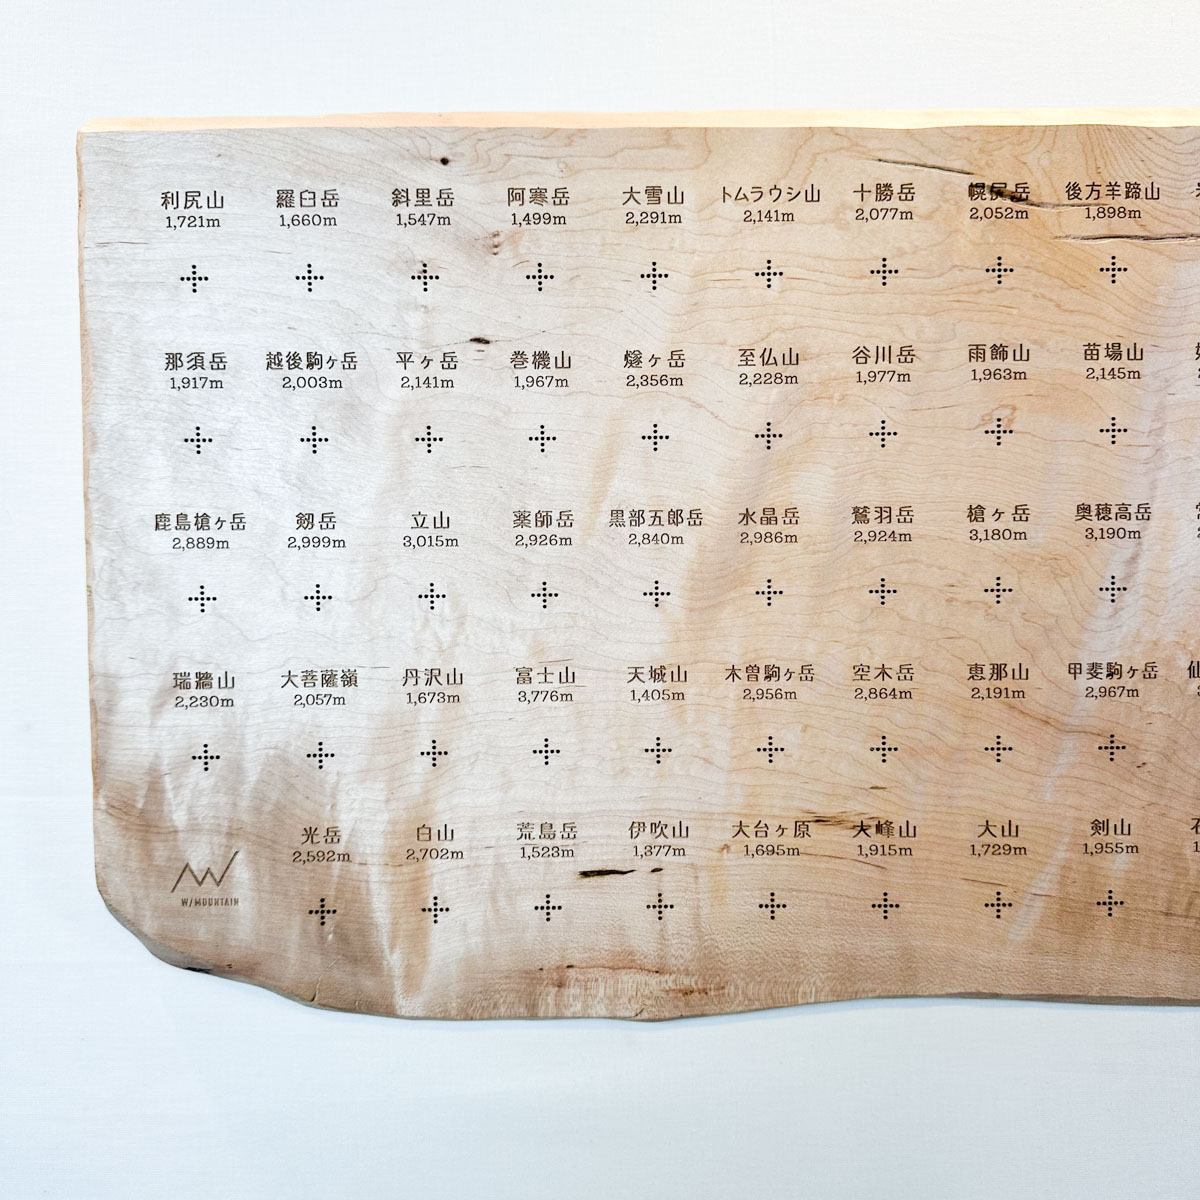 利尻山 羅臼岳 斜里岳 阿寒岳 大雪山 トムラウシ山 十勝岳 幌尻岳 後方羊蹄山
1,721m 1,660m 1,547m 1,499m 2,291m 2,141m 2,077m 2,052m 1,898m
那須岳 越後駒ヶ岳 平ヶ岳 巻機山 燧ヶ岳 至仏山 谷川岳 雨飾山 苗場山
1,917m 2,003m 2,141m 1,967m 2,356m 2,228m 1,977m 1,963m 2,145m
鹿島槍ヶ岳 剱岳 立山 薬師岳 黒部五郎岳 水晶岳 鷲羽岳 槍ヶ岳 奥穂高岳
2,889m 2,999m 3,015m 2,926m 2,840m 2,986m 2,924m 3,180m 3,190m
瑞牆山 大菩薩嶺 丹沢山 富士山 天城山 木曽駒ヶ岳 空木岳 恵那山 甲斐駒ヶ岳 仙
2,230m 2,057m 1,673m 3,776m 1,405m 2,956m 2,864m 2,191m 2,967m
光岳 白山 荒島岳 伊吹山 大台ヶ原 大峰山 大山 剣山
2,592m 2,702m 1,523m 1,377m 1,695m 1,915m 1,729m 1,955m
W/MOUNTAIN